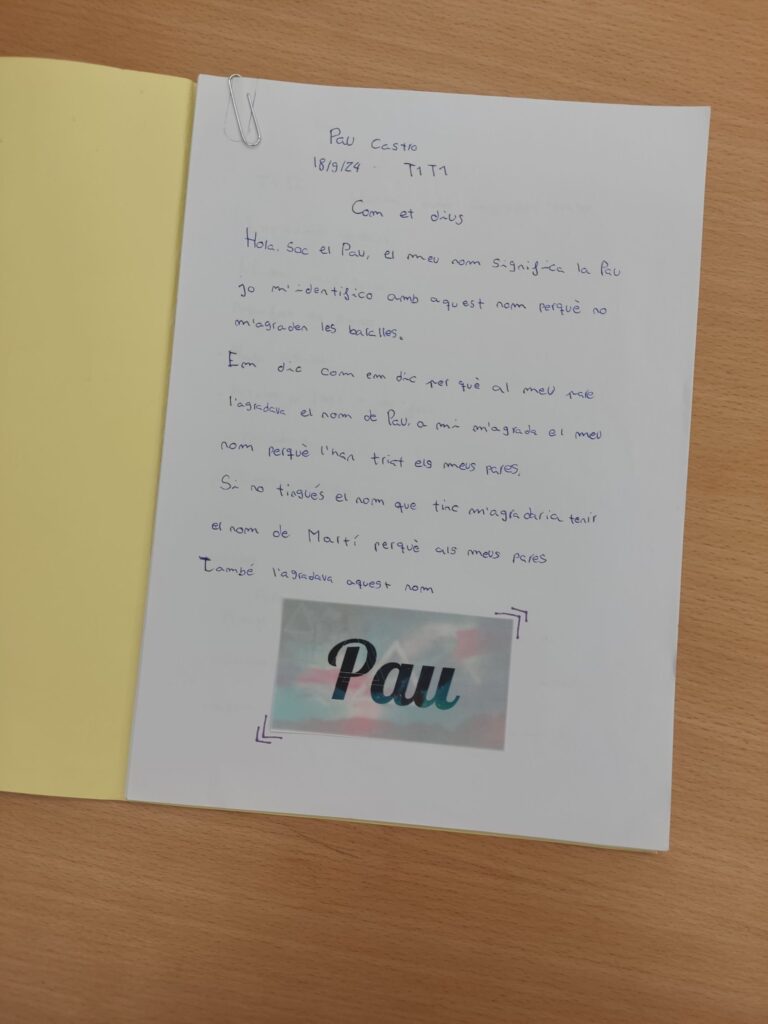 Pau Castro
18/9/24 T1 T1
Com et dius
Hola. Soc el Pau, el meu nom significa la Pau
jo m'identifico amb aquest nom perquè no
m'agraden les batalles.
Em dic com em dic per què al meu pare
l'agradava el nom de Pau. a mi m'agrada el meu
nom perquè l'han triat els meus pares.
Si no tingués el nom que tinc m'agradaria tenir
el nom de Martí perquè als meus pares
També l'agradava aquest nom
Pau